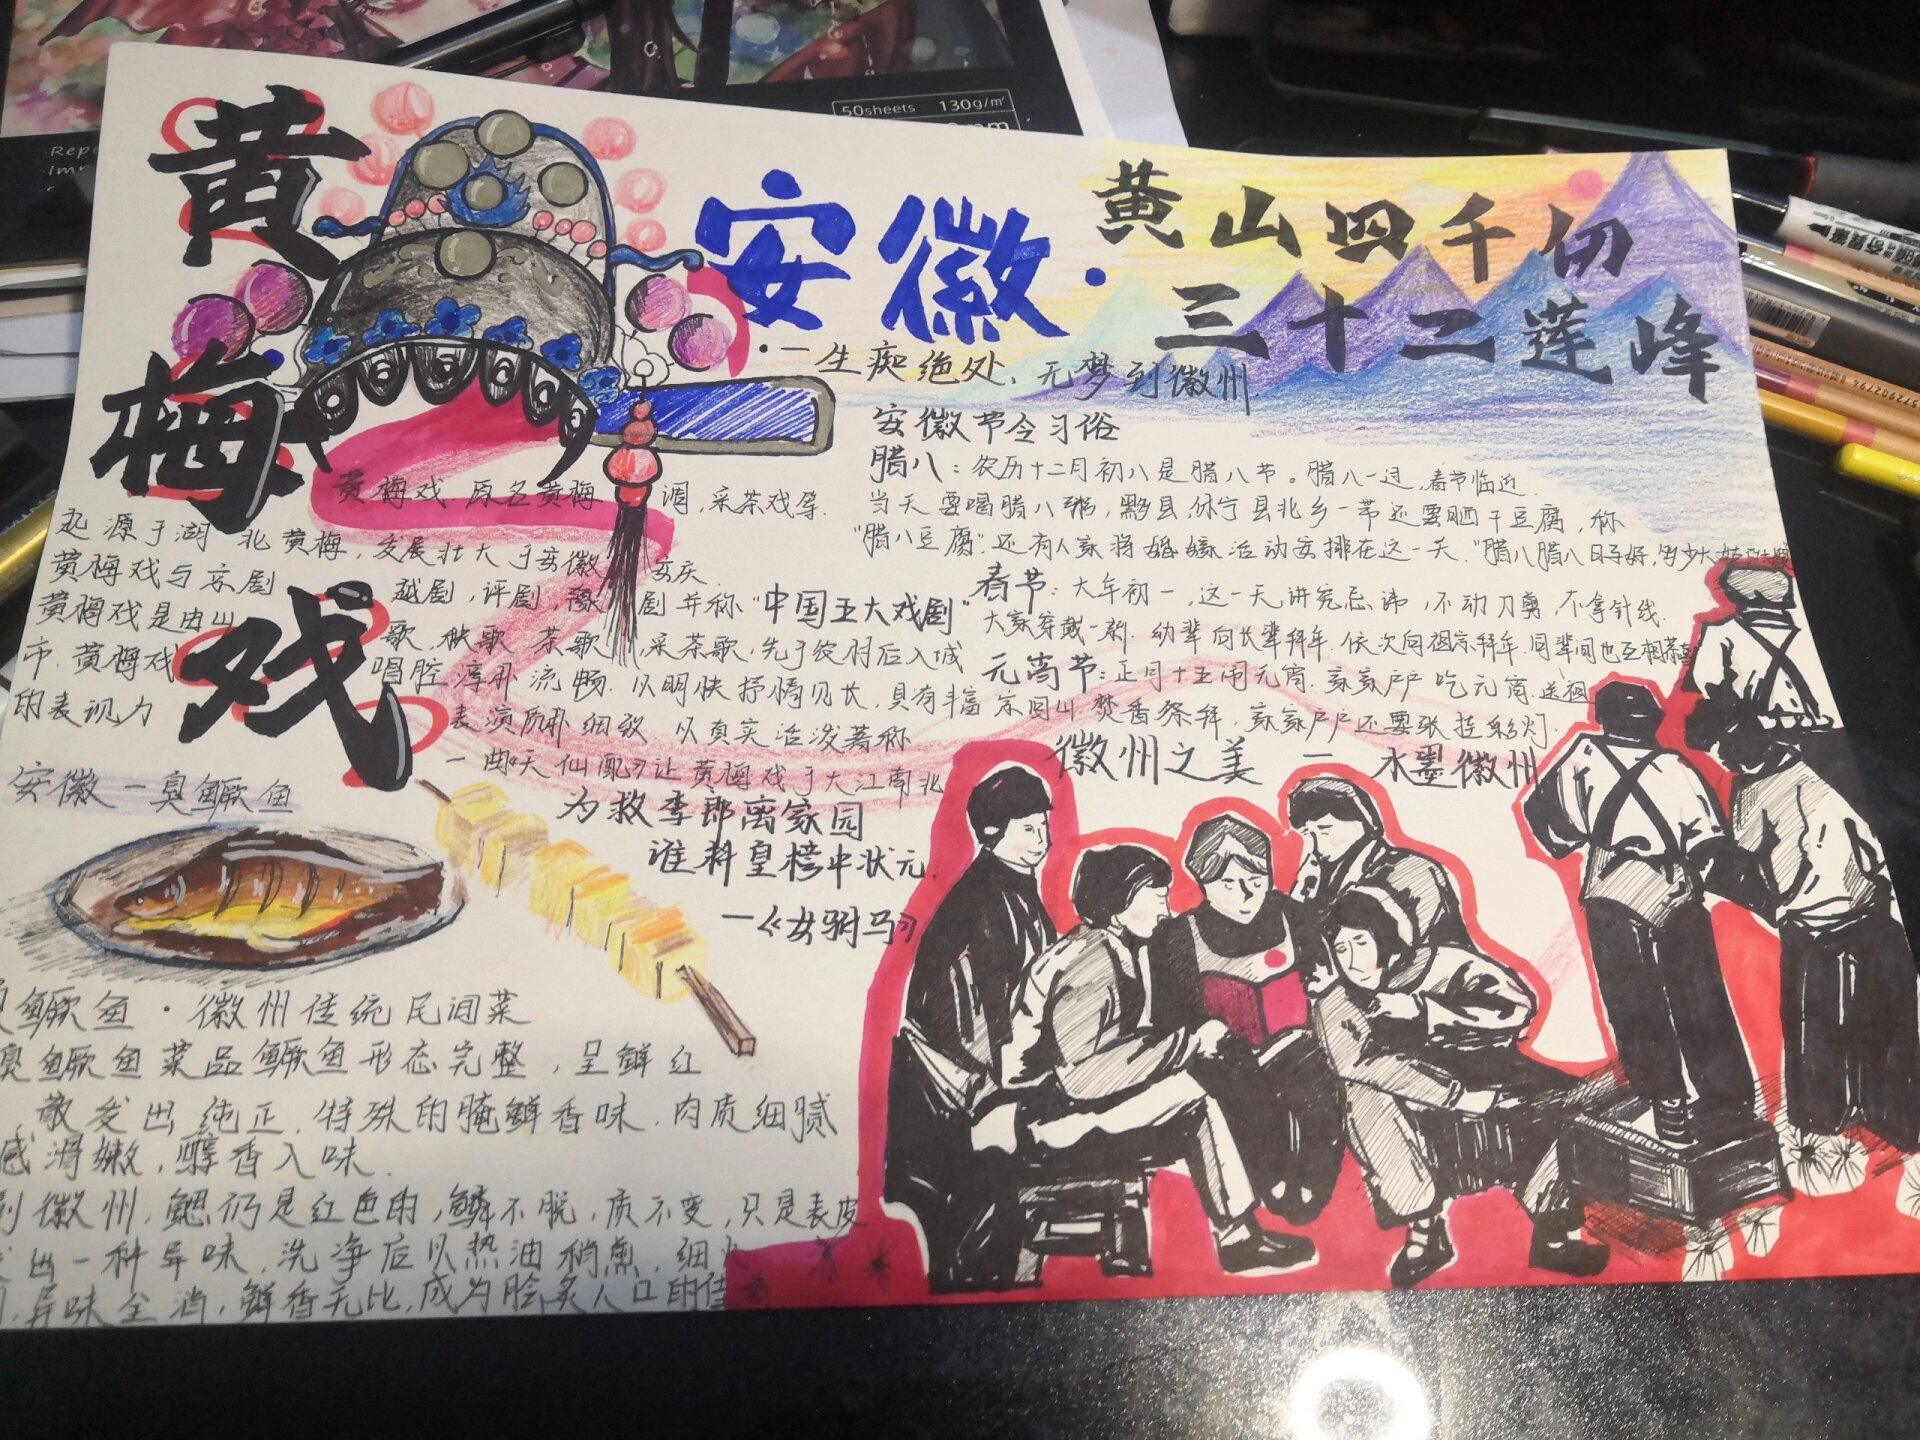 50sheets 130g/㎡
黄梅戏
安徽·
黄山四千仞
三十二莲峰
·一生痴绝处，无梦到徽州
黄梅戏.原名黄梅调,采茶戏等.
起源于湖北黄梅，发展壮大于安徽安庆.
黄梅戏与京剧越剧，评剧，豫剧并称"中国五大戏剧"
黄梅戏是由山歌，秧歌，茶歌，采茶歌，先于农村后入城
市.黄梅戏唱腔淳朴流畅.以明快抒情见长，具有丰富
的表现力 表演质朴细致 以真实活泼著称
一曲《天仙配》让黄梅戏于大江南北
为救李郎离家园
谁料皇榜中状元.
—《女驸马》
安徽节令习俗
腊八：农历十二月初八是腊八节。腊八一过，春节临近.
当天要喝腊八粥，黟县，休宁县北乡一带还要晒干豆腐，称
"腊八豆腐".还有人家将婚嫁活动安排在这一天."腊八腊八日子好，多少大姑
春节：大年初一，这一天讲究忌讳，不动刀剪.不拿针线.
大家穿戴一新.幼辈向长辈拜年.依次向祖宗拜年.同辈间也互相恭喜
元宵节：正月十五闹元宵.家家户户吃元宵.送祖
宗回山.焚香祭拜，家家户户还要张挂彩灯.
徽州之美 — 水墨徽州
安徽-臭鳜鱼
臭鳜鱼·徽州传统民间菜
臭鳜鱼菜品鳜鱼形态完整，呈鲜红
散发出纯正.特殊的腌鲜香味.肉质细腻
感滑嫩，醇香入味.
到徽州，鳃仍是红色的，鳞不脱，质不变，只是表皮
出一种异味，洗净后以热油稍煎，细火
异味全消，鲜香无比，成为脍炙人口的佳